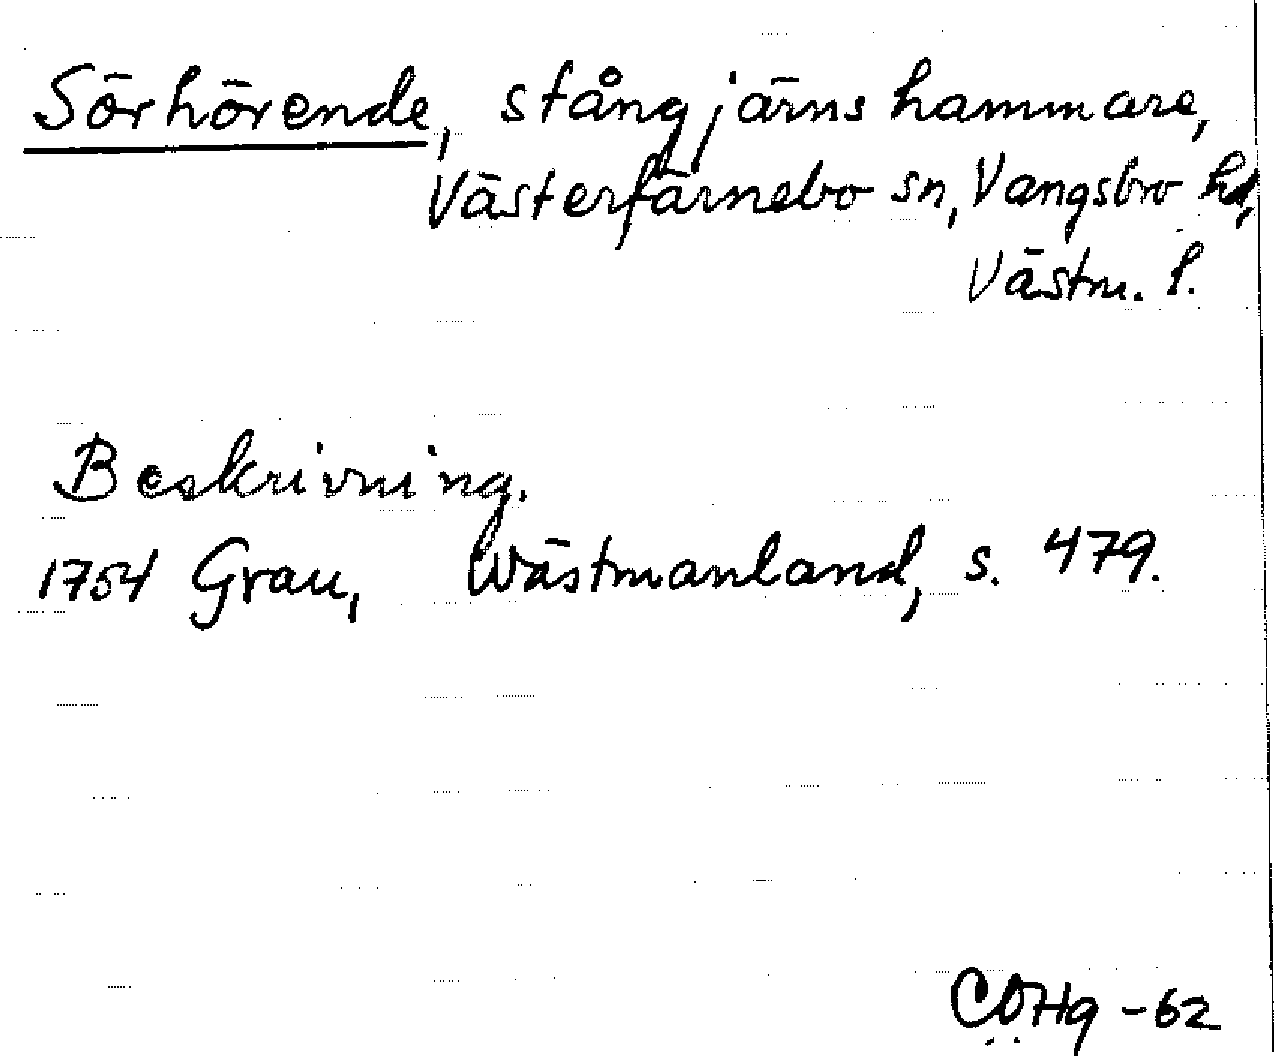 Sörhörende, stångjärnshammare,
Västerfärnebo sn, Vangsbro hd,
Västm. l.
Beskrivning.
1754 Grau, Wästmanland, s. 479.
CÖHg -62